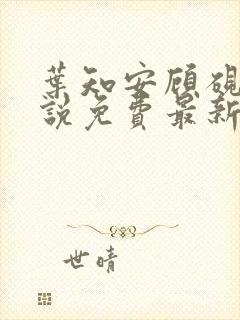 葉知安顧硯
說免費最新
世晴